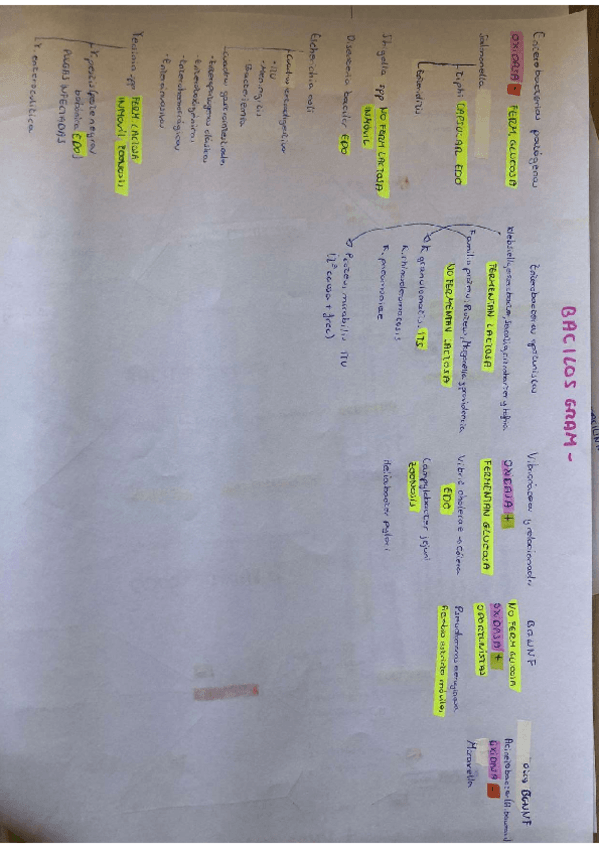 BACILOS GRAM -
Enterobacterias patógenas
OXIDASA - FERM GLUCOSA
Salmonella
Typhi CAPSULAR EDO
Enteriditis
Shigella spp NO FERM LACTOSA
INMÓVIL
Disentería bacilar EDO
Escherichia coli
Cuadros extradigestivos
• ITU
• Meningitis
Bacteriemia
Cuadros gastrointestinales
• Enteropatógenos clásicos
• Enterotoxígenicos
• Enterohemorrágicos
• Enteroinvasivos
Yersinia spp FERM LACTOSA
INMÓVIL ZOONOSIS
Y. pestis/peste negra y
bubónica (EDO)
PULGAS INFECTADAS
Y. enterocolitica
Enterobacterias oportunistas
Klebsiella, enterobacter, Serratia, citrobacter y hafnia
FERMENTAN LACTOSA
Familia proteus, Proteus, Morganella y providencia
NO FERMENTAN LACTOSA
K. granulomatis ITS
K. rhinoscleromatis
K. pneumoniae
Proteus mirabilis ITU
(2ª causa + frec)
Vibrionaceae y relacionados
OXIDASA +
FERMENTAN GLUCOSA
Vibrio cholerae → Cólera
EDO
Campylobacter jejuni
ZOONOSIS
Helicobacter pylori
BGNNF
NO FERM GLUCOSA
OXIDASA +
OPORTUNISTAS
Pseudomona aeruginosa
Aerobio estricto móviles
Otros BGNNF
Acinetobacter (A. baumanii)
OXIDASA -
Moraxella